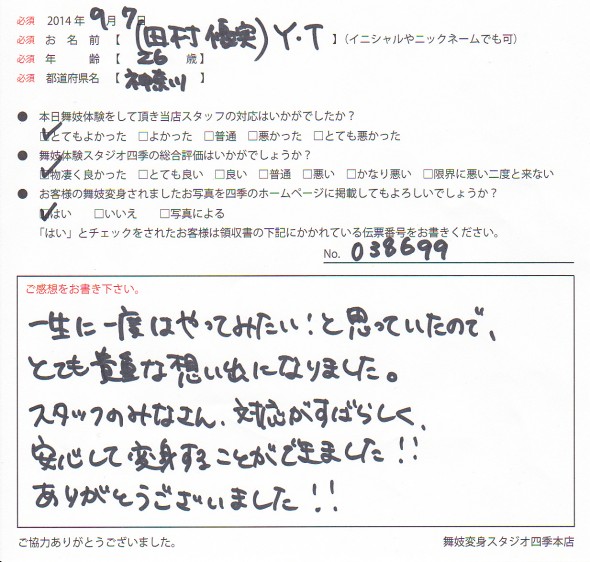 必須 2014年 9月 7日
必須 お名前【(田村優実) Y・T】(イニシャルやニックネームでも可)
必須 年齢【26歳】
必須 都道府県名【神奈川】
● 本日舞妓体験をして頂き当店スタッフの対応はいかがでしたか?
☑とてもよかった □よかった □普通 □悪かった □とても悪かった
● 舞妓体験スタジオ四季の総合評価はいかがでしょうか?
☑物凄く良かった □とても良い □良い □普通 □悪い □かなり悪い □限界に悪い二度と来ない
● お客様の舞妓変身されましたお写真を四季のホームページに掲載してもよろしいでしょうか?
☑はい □いいえ □写真による
「はい」とチェックをされたお客様は領収書の下記にかかれている伝票番号をお書きください。
No. 038699
ご感想をお書き下さい。
一生に一度はやってみたい!と思っていたので、
とても貴重な想い出になりました。
スタッフのみなさん、対応がすばらしく、
安心して変身することができました!!
ありがとうございました!!
ご協力ありがとうございました。 舞妓変身スタジオ四季本店